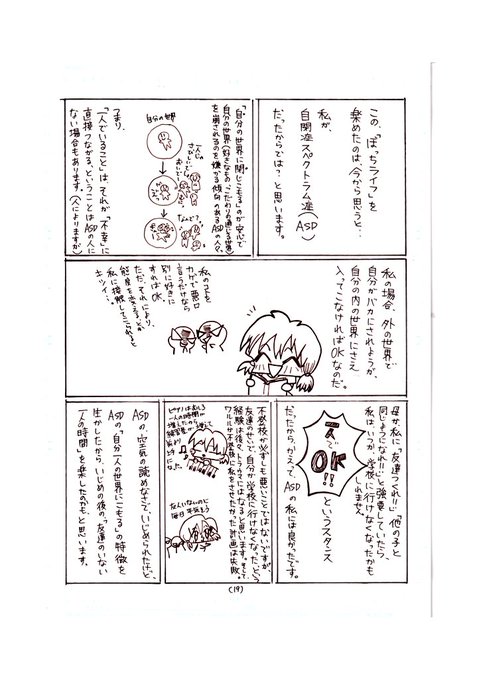 この、「ぼっちライフ」を
楽めたのは、今から思うと…
私が、
自閉症スペクトラム症(ASD)
だったからでは?と思います。
「自分の世界に閉じこもる」のが安心で
自分の世界(好きなもの・こだわりの通じる世界)
を崩されるのを嫌がる傾向のあるASDの人々。
自分の世界
一人じゃ
さみしいでしょ
おいでー
なんで?
つまり、
「一人でいること」は、それが「不幸」に
直接つながる、ということはASDの人に
ない場合もあります。(人によりますが)
私の場合、外の世界で
自分がバカにされようが、
自分の内の世界にさえ
入ってこなければOKなのだ。
私のコトを
カゲで悪口
言うだけなら
別に好きに
すればOK。
ただ、それにより、
態度を変えるとか
私に接触してこられると
キツイ…
母が私に「友達つくれ!!」「他の子と
同じようになれ!!」と強要していたら、
私はいつか、学校に行けなくなったかも
しれません。
一人で
OK!!
というスタンス
だったから、かえってASDの私には良かったです。
不登校が必ずしも悪いことではないですが、
友達のせいで、自分が学校に行けなくなった、という
経験は後々、トラウマになると思います。そして
ワルルが不登校に私をさせたかった計画は失敗。
ピアノはむしろ
一人の時間が
増えたので
練習量が
増え
前より上手
になった。
友人いないけど
毎日平気よう
ASDの、空気の読めなさで、いじめられたけど、
ASDの「自分一人の世界にこもる」の特徴を
生かしたから、いじめの後の、「友達のいない
一人の時間」を楽しめたのかも、と思います。
(19)